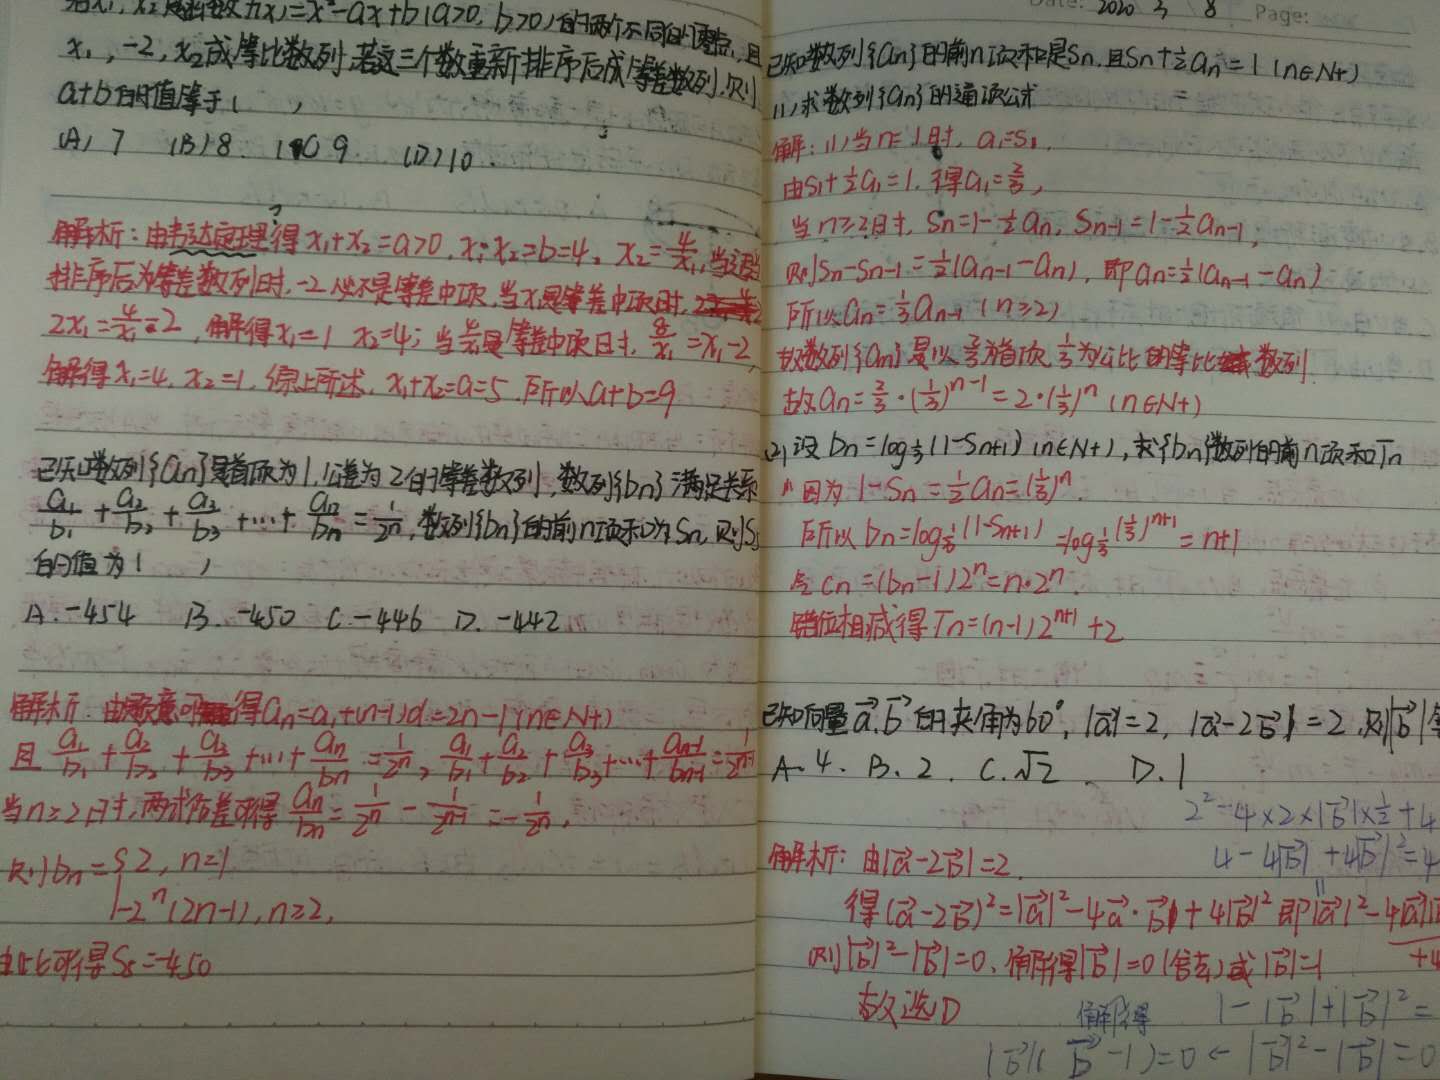 若x₁, x₂是函数f(x)=x²-ax+b(a>0, b>0)的两个不同的零点,且
x₁, -2, x₂成等比数列,若这三个数重新排序后成等差数列,则
a+b的值等于( )
(A) 7 (B) 8. (C) 9 (D) 10.
解析:由韦达定理得x₁+x₂=a>0, x₁·x₂=b=4, x₂=4/x₁,
排序后为等差数列时,-2必不是等差中项,当x₁是等差中项时,
2x₁=4/x₁-2, 解得x₁=1 x₂=4; 当4/x₁是等差中项时, 8/x₁=x₁-2
解得x₁=4, x₂=1, 综上所述, x₁+x₂=a=5. 所以a+b=9
已知数列{an}是首项为1,公差为2的等差数列,数列{bn}满足关系
a₁/b₁+a₂/b₂+a₃/b₃+…+an/bn=1/2ⁿ, 数列{bn}的前n项和为Sn, 则S₅
的值为( )
A. -454 B. -450 C. -446 D. -442
解析:由题意可得an=a₁+(n-1)d=2n-1(n∈N+)
且 a₁/b₁+a₂/b₂+a₃/b₃+…+an/bn=1/2ⁿ, a₁/b₁+a₂/b₂+a₃/b₃+…+an-1/bn-1=1/2ⁿ⁻¹
当n≥2时,两式作差可得an/bn=1/2ⁿ-1/2ⁿ⁻¹=-1/2ⁿ,
则bn={2, n=1
-2ⁿ(2n-1), n≥2,
由此可得S₅=-450
Date: 2020 3 8 Page:
已知数列{an}的前n项和是Sn,且Sn+½an=1 (n∈N+)
(1)求数列{an}的通项公式
解:(1)当n=1时, a₁=S₁,
由S₁+½a₁=1, 得a₁=2/3,
当n≥2时, Sn=1-½an, Sn-1=1-½an-1,
则Sn-Sn-1=½(an-1-an), 即an=½(an-1-an)
所以an=⅓an-1 (n≥2)
故数列{an}是以2/3为首项,1/3为公比的等比数列
故an=2/3·(1/3)ⁿ⁻¹=2·(1/3)ⁿ (n∈N+)
(2)设bn=log⅓(1-Sn+1) (n∈N+), 求{bn}数列的前n项和Tn
因为1-Sn=½an=(1/3)ⁿ.
所以bn=log⅓(1-Sn+1)=log⅓(1/3)ⁿ⁺¹=n+1
令cn=(bn-1)2ⁿ=n·2ⁿ.
错位相减得Tn=(n-1)2ⁿ⁺¹+2
已知向量a⃗,b⃗的夹角为60°, |a⃗|=2, |a⃗-2b⃗|=2, 则|b⃗|等
A. 4. B. 2. C. √2 D. 1
2²-4×2×|b⃗|×½+4
4-4|b⃗|+4|b⃗|²=4
解析:由|a⃗-2b⃗|=2.
得(a⃗-2b⃗)²=|a⃗|²-4a⃗·b⃗+4|b⃗|² 即|a⃗|²-4|a⃗||b⃗
+4
则|b⃗|²-|b⃗|=0, 解得|b⃗|=0(舍去)或|b⃗|=1
故选D
解得 1-|b⃗|+|b⃗|²=
|b⃗|(b⃗-1)=0←|b⃗|²-|b⃗|=0